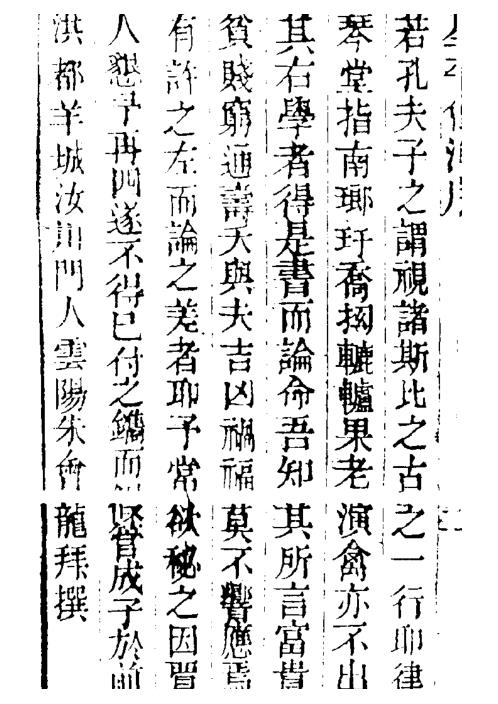 若孔夫子之謂視諸斯比之古之一行耶律
琴堂指南瑯玕喬拗轆轤果老演禽亦不出
其右學者得是書而論命吾知其所言富貴
貧賤窮通壽夭與夫吉凶禍福莫不響應焉
有許之左而論之差者耶予常欲秘之因賈
人懇予再四遂不得已付之鐫而成子於前
洪都羊城汝川門人雲陽朱會龍拜撰